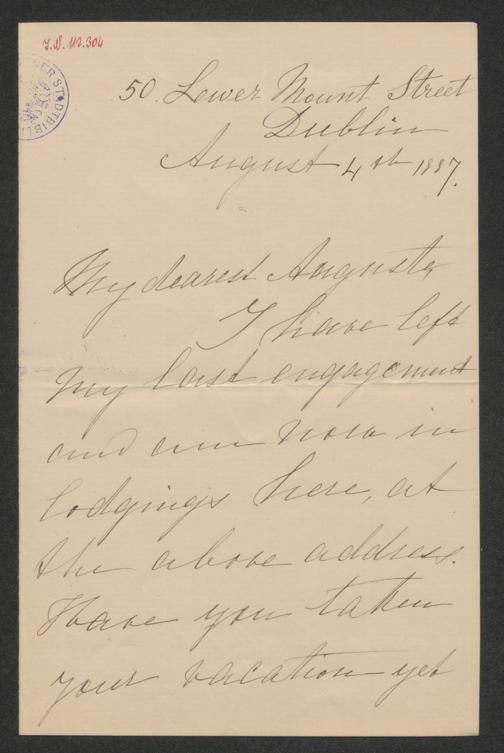 I.N. 112.304
50. Lower Mount Street
Dublin
August 4th 1887.
My dearest Augusta
I have left
my last engagement
and am now in
lodgings here, at
the above address.
Have you taken
your vacation yet